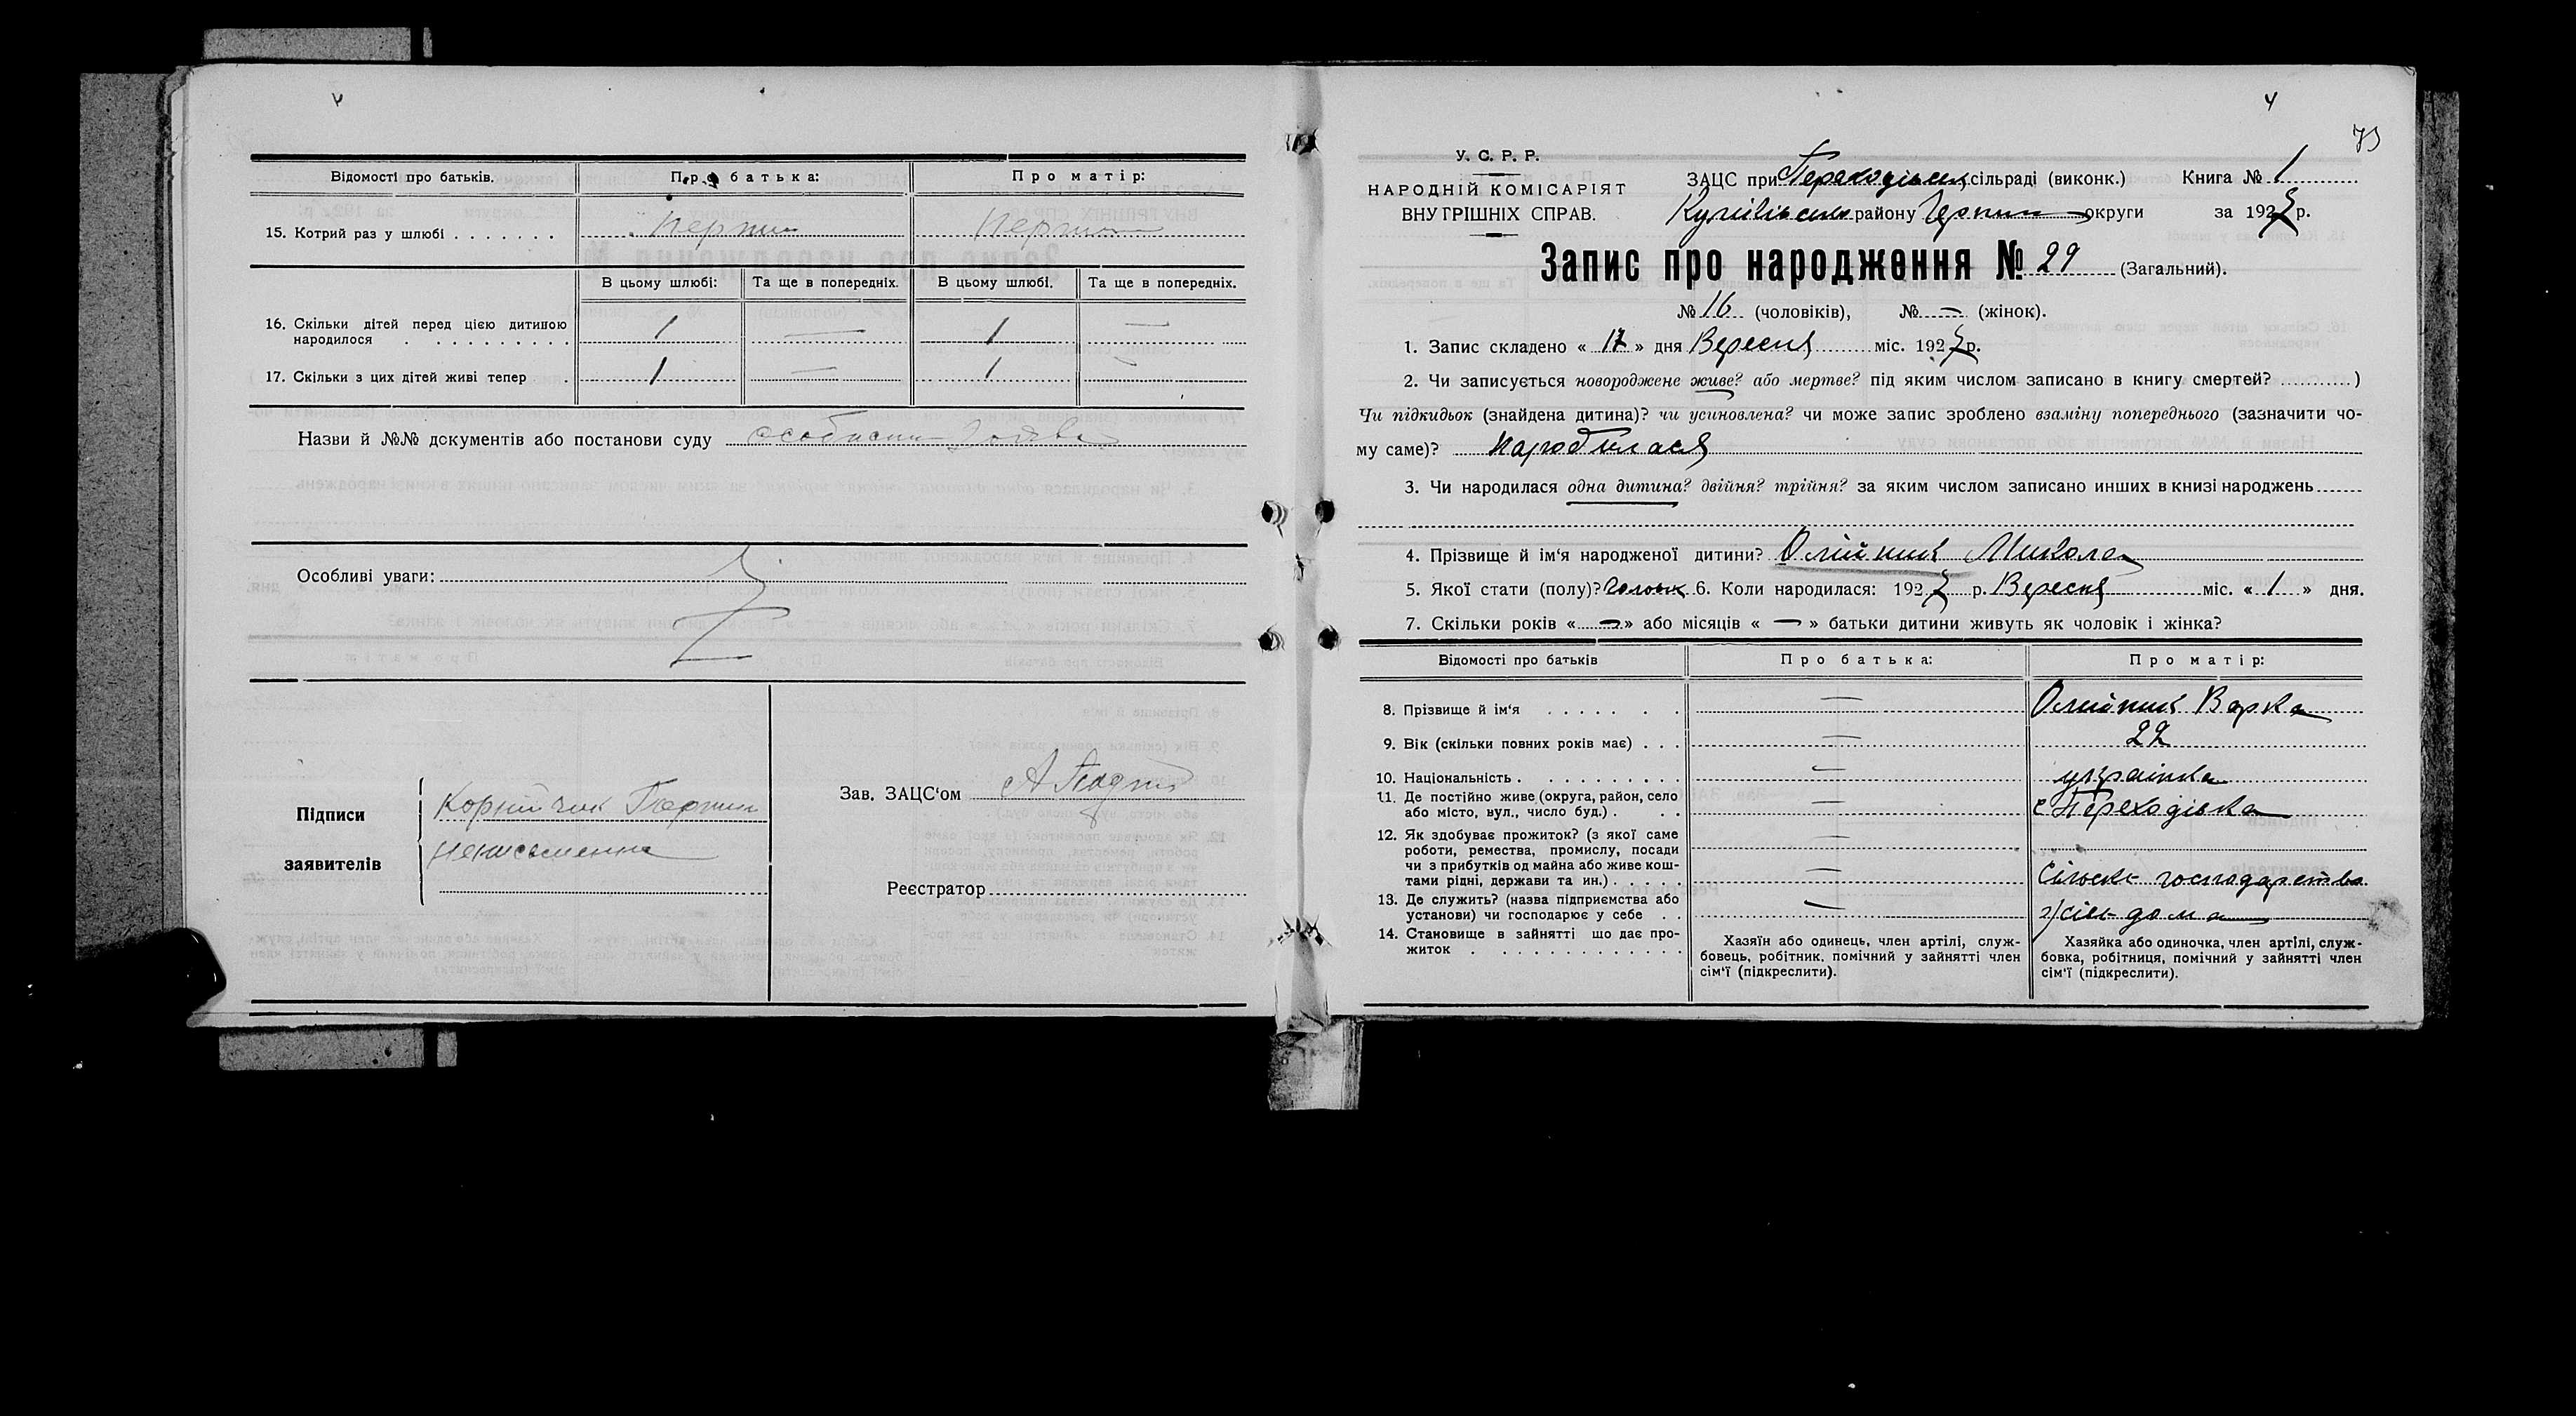 Відомості про батьків. Про батька: Про матір:
15. Котрий раз у шлюбі . . . . . . .
В цьому шлюбі: Та ще в попередніх. В цьому шлюбі. Та ще в попередніх.
16. Скільки дітей перед цією дитиною
народилося . . . . . . . . . . 1 — 1 —
17. Скільки з цих дітей живі тепер . 1 — 1 —
Назви й №№ документів або постанови суду
Особливі уваги:
Підписи
заявителів
неписьменна
Зав. ЗАЦС‘ом
Реєстратор
4
73
У. С. Р. Р.
НАРОДНІЙ КОМІСАРІЯТ
ВНУТРІШНІХ СПРАВ.
ЗАЦС при сільраді (виконк.) Книга № 1
району округи за 192 р.
Запис про народження № 29 (Загальний).
№ 16 (чоловіків), № — (жінок).
1. Запис складено « 17 » дня Вересня міс. 192 р.
2. Чи записується новороджене живе? або мертве? під яким числом записано в книгу смертей? )
Чи підкидьок (знайдена дитина)? чи усиновлена? чи може запис зроблено взаміну попереднього (зазначити чо-
му саме)? народилася
3. Чи народилася одна дитина? двійня? трійня? за яким числом записано инших в книзі народжень
4. Прізвище й ім‘я народженої дитини? Олійник Микола
5. Якої стати (полу)? 6. Коли народилася: 192 р. Вересня міс. « 1 » дня.
7. Скільки років « — » або місяців « — » батьки дитини живуть як чоловік і жінка?
Відомості про батьків Про батька: Про матір:
8. Прізвище й ім‘я . . . . . . . — Олійник Варка
9. Вік (скільки повних років має) . . . — 22
10. Національність . . . . . . . . . . — українка
11. Де постійно живе (округа, район, село
або місто, вул., число буд.) . . . — с Переходівка
12. Як здобуває прожиток? (з якої саме
роботи, ремества, промислу, посади
чи з прибутків од майна або живе кош-
тами рідні, держави та ин.) . . . . . — Сільске господарство
13. Де служить? (назва підприємства або
установи) чи господарює у себе . . — дома
14. Становище в зайнятті що дає про-
житок . . . . . . . . . . . . .
Хазяїн або одинець, член артілі, служ-
бовець, робітник, помічний у зайнятті член
сім‘ї (підкреслити).
Хазяйка або одиночка, член артілі, служ-
бовка, робітниця, помічний у зайнятті член
сім‘ї (підкреслити).